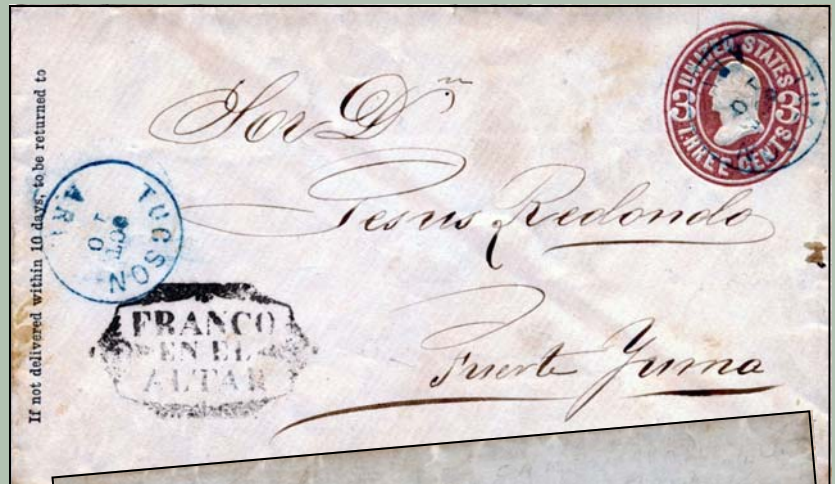 If not delivered within 10 days, to be returned to
UNITED STATES
3 3
THREE CENTS
Sor Dn
Jesus Redondo
TUCSON
OCT
10
ARI
FRANCO
EN EL
ALTAR
Fuerte Yuma